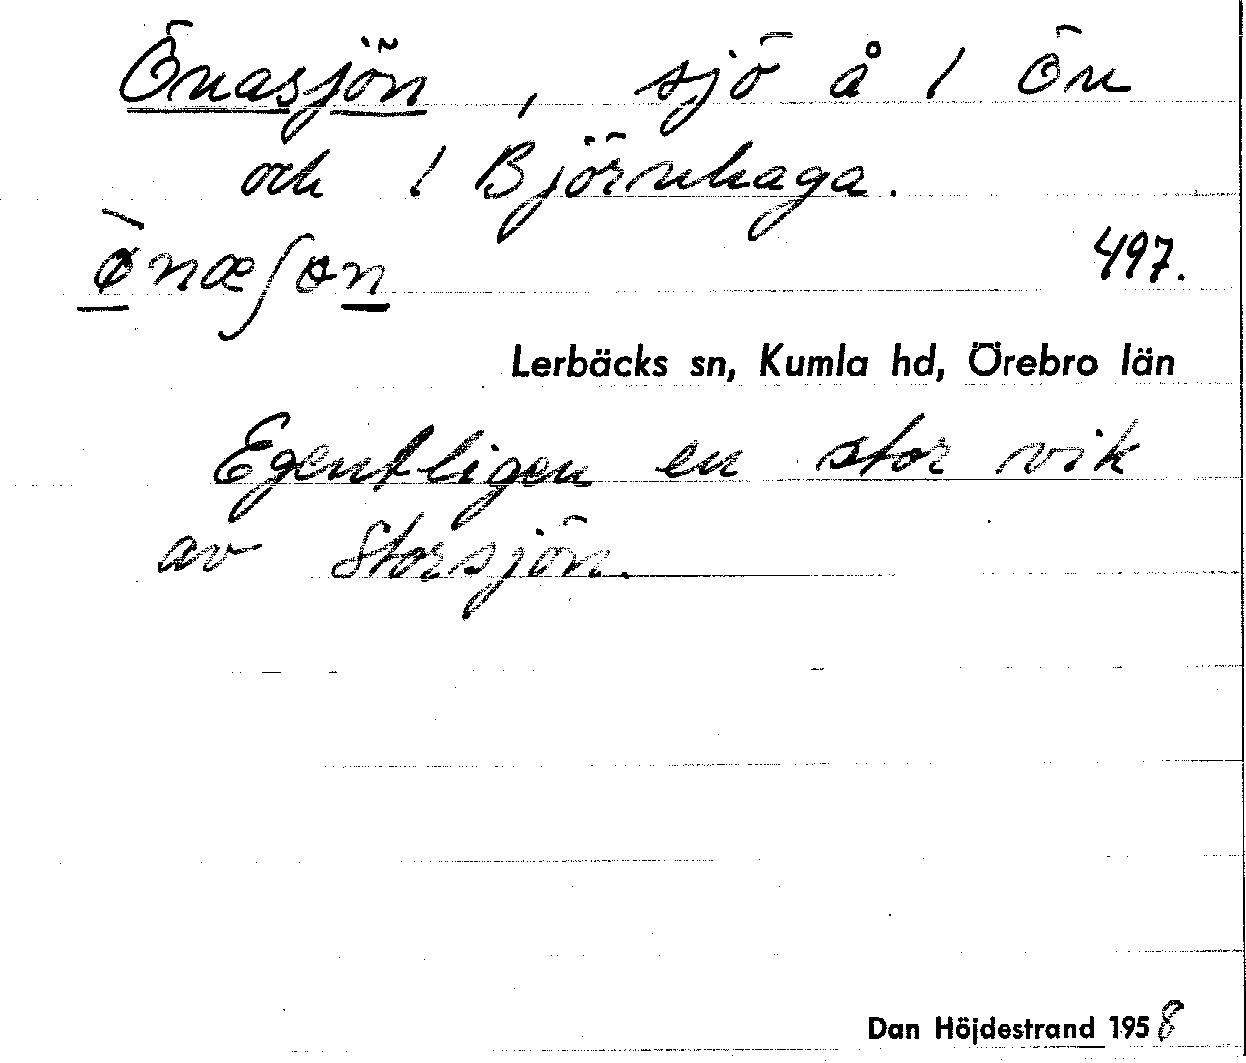 Önasjön, sjö å 1 Ön
och 1 Björnhaga.
ø̀næʃɵn 497.
Lerbäcks sn, Kumla hd, Örebro län
Egentligen en stor vik
av Storsjön.
Dan Höjdestrand 1958